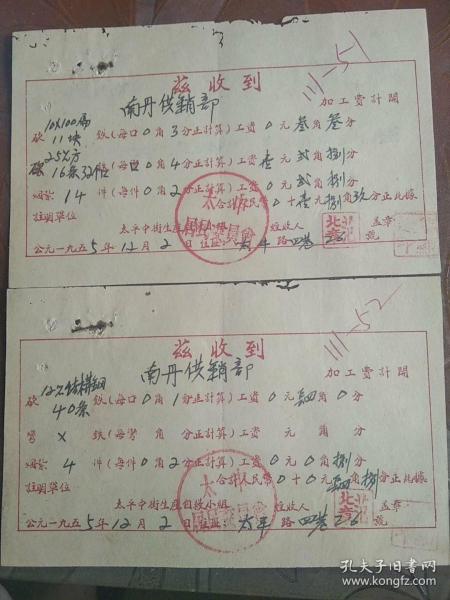 111-51
兹收到
南丹供銷部 加工费計開
10X100扁
砍11块鉄(每口0角3分正計算)工资0元叁角叁分
25%方
砍16条32格鉄(每口0角4分正計算)工资壹元弍角捌分
14件(每件0角2分正計算)工资0元弍角捌分
合計人民幣0十壹元捌角玖分正此據
註明單位
太平中街生産自救小組 經收人 蓋章
公元一九五5年12月2日住址:太平路四巷26號
111-52
兹收到
南丹供銷部 加工费計開
砍40条鉄(每口0角1分正計算)工资0元肆角0分
X鉄(每 角 分正計算)工资 元 角 分
4件(每件0角2分正計算)工资0元0角捌分
合計人民幣0十0元肆角捌分正此據
註明單位
太平中街生産自救小組 經收人 蓋章:
公元一九五5年12月2日住址:太平路四巷26號
孔夫子旧书网
www.kongfz.com